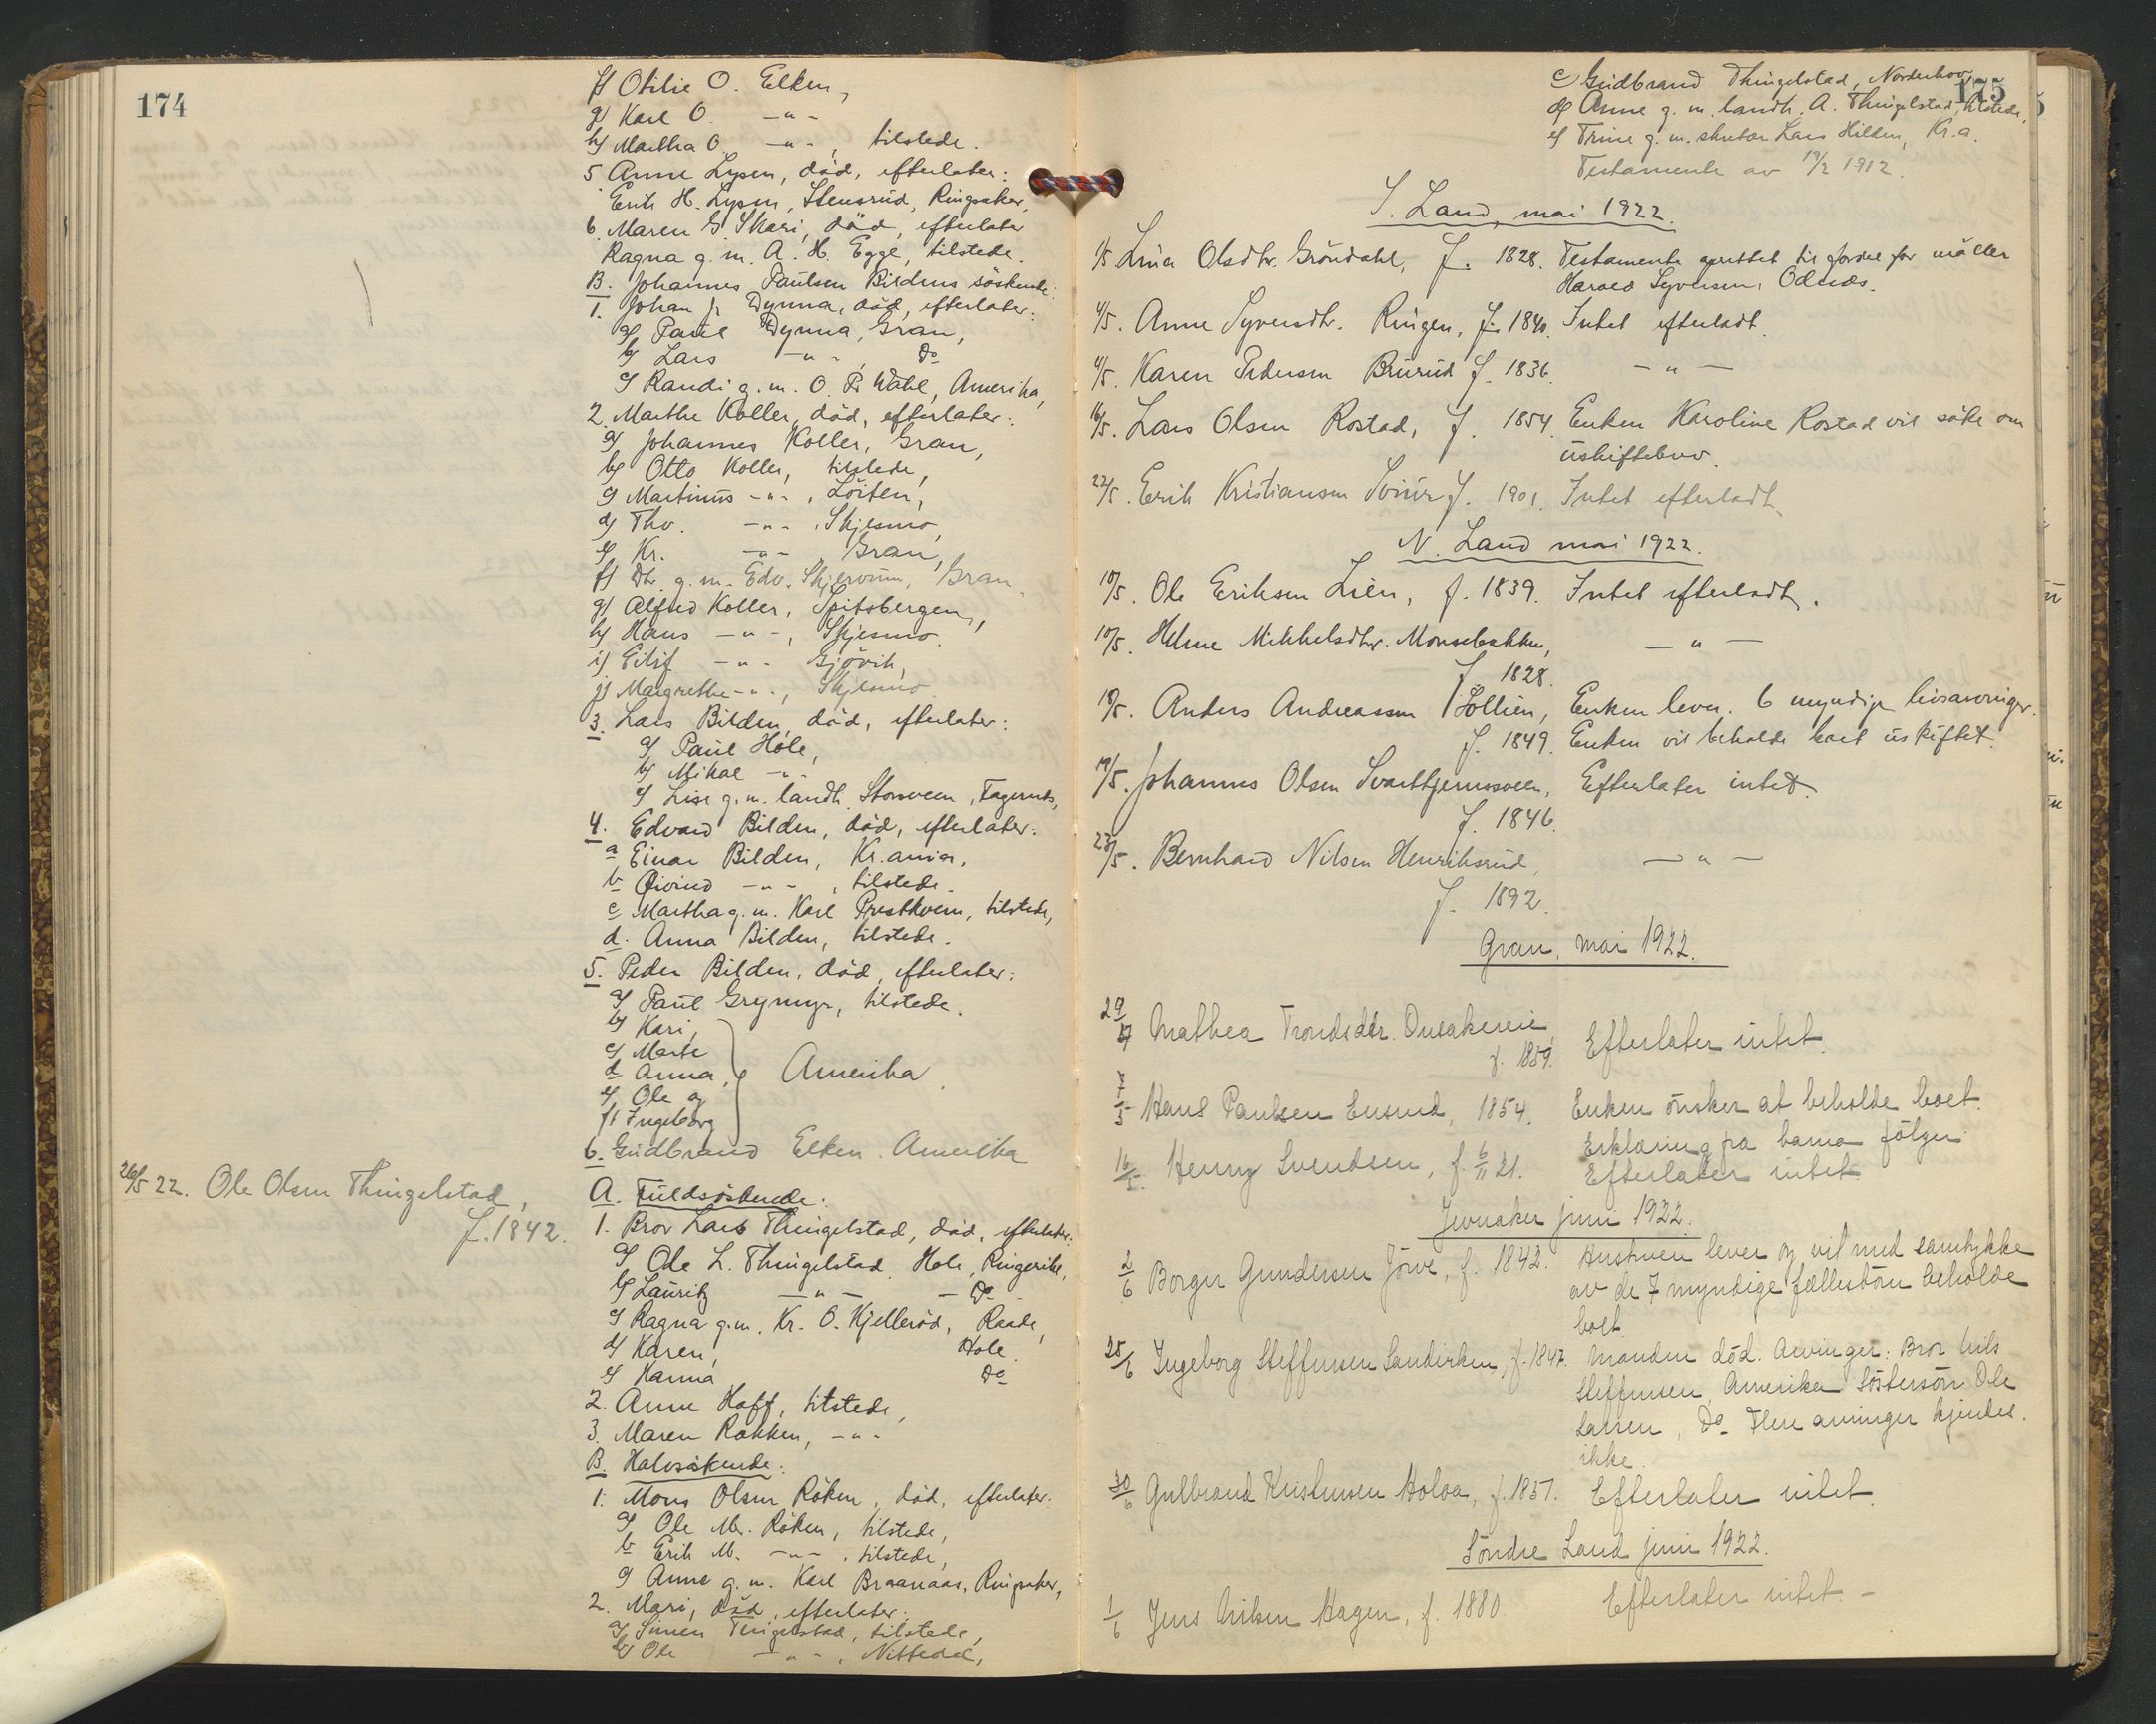 174
f) Otilie O. Elken,
g) Karl O. -"-
h) Martha O. -"-, tilstede.
5 Anne Lysen, död, efterlater:
Erik H. Lysen, Stensrud, Ringsaker,
6. Maren G. Skari, död, efterlater
Ragna g. m. A. H. Egge, tilstede.
B. Johannes Paulsen Bildens söskende:
1. Johan Dynna, död, efterlater:
a) Paul Dynna, Gran,
b) Lars -"-, Do
c) Randi g. m. O. P. Wahl, Amerika,
2. Marthe Koller, död, efterlater:
a) Johannes Koller, Gran,
b) Otto Koller, tilstede,
c) Martinus -"-, Löiten,
d) Thv. -"-, Skjesmo,
e) Kr. -"-, Gran,
f) Dtr. g. m. Edv. Skjervum, Gran
g) Alfred Koller, Spitsbergen,
h) Hans -"-, Skjesmo.
i) Eilif -"- Gjövik,
j) Margrethe -"-, Skjesmo.
3. Lars Bilden, död, efterlater:
a) Paul Hole,
b) Mikal -"-
c) Lise g. m. landh. Storsveen, Fagernes,
4. Edvard Bilden, död, efterlater:
a Einar Bilden, Kr.ania,
b Öivind -"-, tilstede.
c Martha g. m. Karl Prestkvern, tilstede,
d. Anna Bilden, tilstede.
5. Peder Bilden, död, efterlater:
a) Paul Grymyr, tilstede.
b) Kari,
c) Marte
d Anna, Amerika.
e) Ole og
f) Ingeborg
6. Gudbrand Elken. Amerika
26/5 22. Ole Olsen Thingelstad,
f. 1842.
A. Fuldsöskende:
1. Bror Lars Thingelstad, död, efterlater:
a) Ole L. Thingelstad Hole, Ringerike,
b) Lauritz -"- - Do -
c) Ragna g. m. Kr. O. Kjelleröd, Raade,
d) Karen, Hole.
e) Hanna Do
2. Anne Hoff, tilstede,
3. Maren Rökken, -"-
B. Halvsöskende:
1. Mons Olsen Röken, död, efterlater:
a) Ole M. Röken, tilstede,
b Erik M. -"-, tilstede,
c) Anne g. m. Karl Braanaas, Ringsaker,
2. Mari, död, efterlater:
a) Simen Tingelstad, tilstede,
b) Ole -"-, Nittedal,
175
c) Gudbrand Thingelstad, Norderhov
d) Anne g. m. landh. A. Thingelstad, tilstede,
e) Trine g. m. Lars Hilden, Kr.a.
Testamente av 19/2 1912.
S. Land, mai 1922.
1/5 Lina Olsdtr. Gröndahl, f. 1828. Testamente oprettet til fordel for mäller
Harald Syversen, Odnes.
4/5. Anne Syversdtr. Ringen, f. 1840. Intet efterladt.
4/5. Karen Pedersen Brurud f. 1836. -"-
16/5. Lars Olsen Rostad, f. 1854. Enken Karoline Rostad vil söke om
uskiftebev.
22/5. Erik Kristiansen f. 1901. Intet efterladt.
N. Land mai 1922.
10/5. Ole Eriksen Lien, f. 1839. Intet efterladt.
10/5. Helene Mikkelsdtr. Monsebakken, -"-
f. 1828.
Anders Andreassen Hollien, Enken lever. 6 myndige livsarvinger.
f. 1849. Enken vil beholde boet uskiftet.
19/5. Johannes Olsen Svarttjernsveen, Efterlater intet.
f. 1846.
23/5. Bernhard Nilsen Henriksrud, -"-
f. 1892.
Gran, mai 1922.
29/4 Mathea Trondsdtr. Onsakereie, Efterlater intet.
f. 1859.
7/5 Hans Paulsen Ensrud, 1854. Enken önsker at beholde boet.
Erklæring fra barna fölger.
16/5. Henry Svendsen, f. 6/11 21. Efterlater intet.
Jevnaker juni 1922.
2/6 Borger Gundersen Jorve, f. 1842. Hustruen lever og vil med samtykke
av de 7 myndige fællesbörn beholde
boet.
25/6 Ingeborg Steffensen Sandviken, f. 1847. Manden död. Arvinger: Bror Nils
Steffensen, Amerika Söstersön Ole
Larsen, Do. Flere arvinger kjendes
ikke.
30/6 Gulbrand Kristensen Holoa, f. 1851. Efterlater intet.
Söndre Land juni 1922.
1/6 Jens Nilsen Hagen, f. 1880. Efterlater intet. -